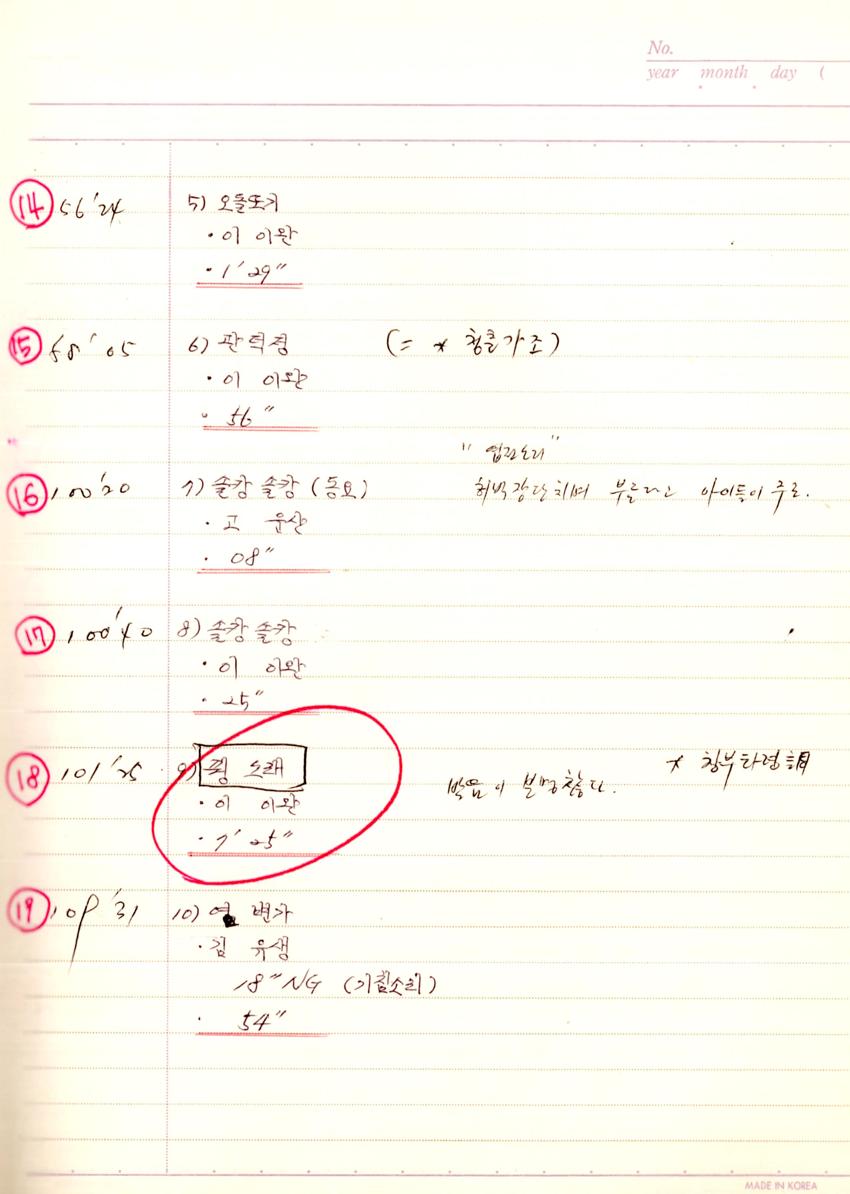 No.
year month day (
14 56'24 5) 오돌또기
· 이 이완
· 1'29"
15 58'05 6) 관덕정 (= * 청춘가조)
· 이 이완
· 56"
"엽전소리"
16 100'20 7) 솔캉 솔캉 (동요) 허벅장단치며 부른다고 아이들이 주로.
· 고 운산
· 08"
17 100'40 8) 솔캉 솔캉
· 이 이완
· 25"
18 101'25 9) 꿩 노래 * 창부타령調
· 이 이완 발음이 분명찮다.
· 7'25"
19 109'31 10) 변가
· 김 유생
18" NG (기침소리)
· 54"
MADE IN KOREA